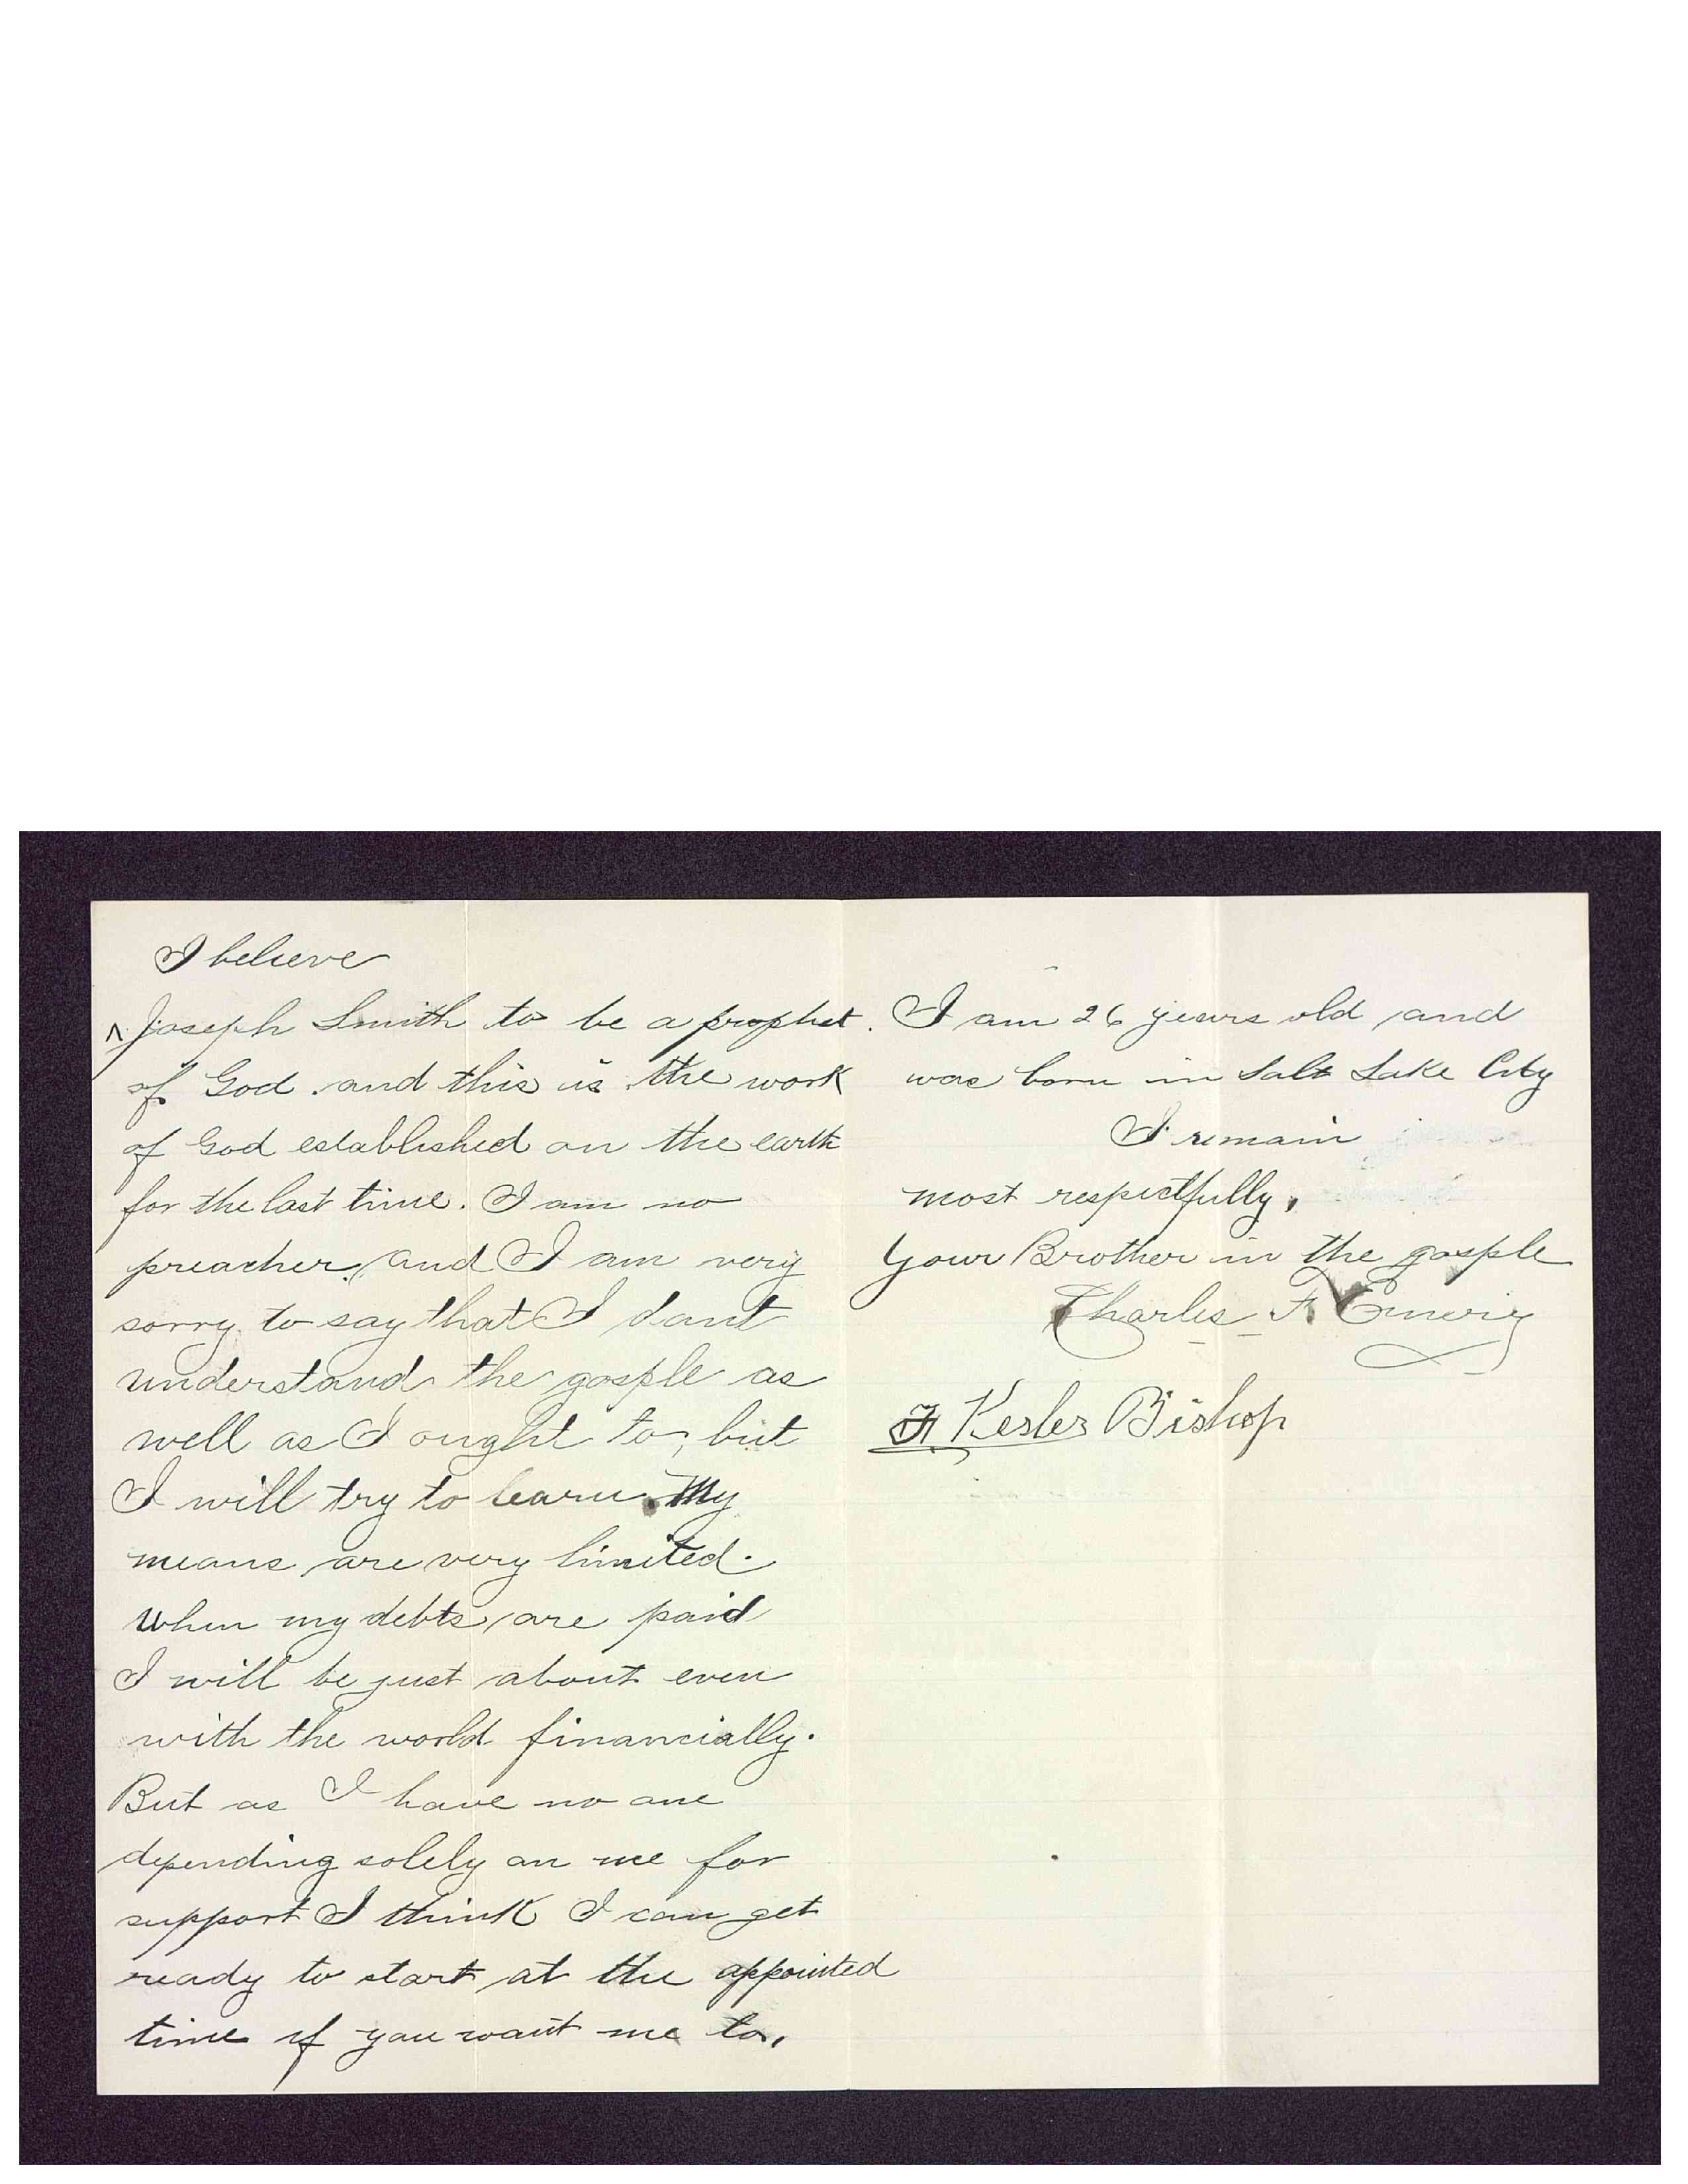 I believe
^ Joseph Smith to be a prophet.
of God and this is the work
of God established on the earth
for the last time. I am no
preacher, and I am very
sorry to say that I dont
understand the gosple as
well as I ought to, but
I will try to learn. My
means are very limited.
when my debts are paid
I will be just about even
with the world financially.
But as I have no one
depending solely on me for
support I think I can get
ready to start at the appointed
time if you want me to.
I am 26 years old and
was born in Salt Lake City
I remain
most respectfully,
Your Brother in the gosple
Charles F. Emery
F Kesler Bishop